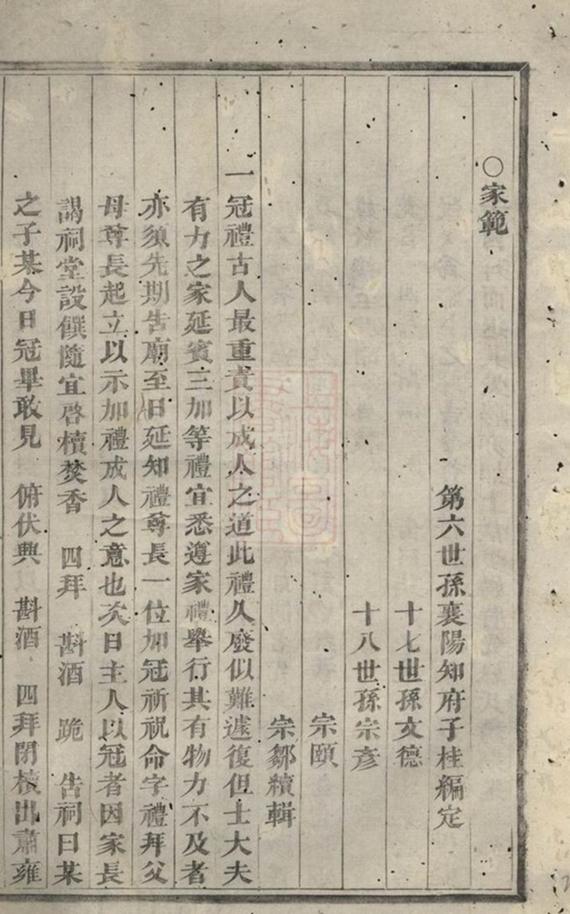 ○家範
第六世孫襄陽知府子桂編定
十七世孫文德
十八世孫宗彥
宗頤
宗鄒續輯
一冠禮古人最重責以成人之道此禮久廢似難遽復但士大夫
有力之家延賓三加等禮宜悉遵家禮舉行其有物力不及者
亦須先期告廟至日延知禮尊長一位加冠祈祝命字禮拜父
母尊長起立以示加禮成人之意也次日主人以冠者因家長
謁祠堂設饌隨宜啓櫝焚香 四拜 斟酒 跪 告祠曰某
之子某今日冠畢敢見 俯伏興 斟酒 四拜閉櫝出肅雍